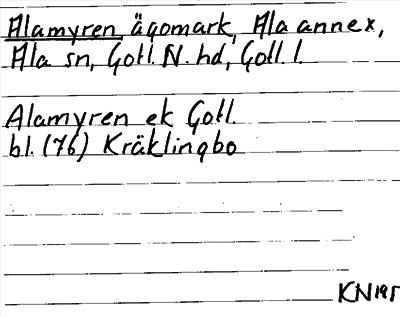 Alamyren, ägomark, Ala annex,
Ala sn, Gotl. N. hd, Gotl. l.
Alamyren ek Gotl.
bl. (76) Kräklingbo
KN 195